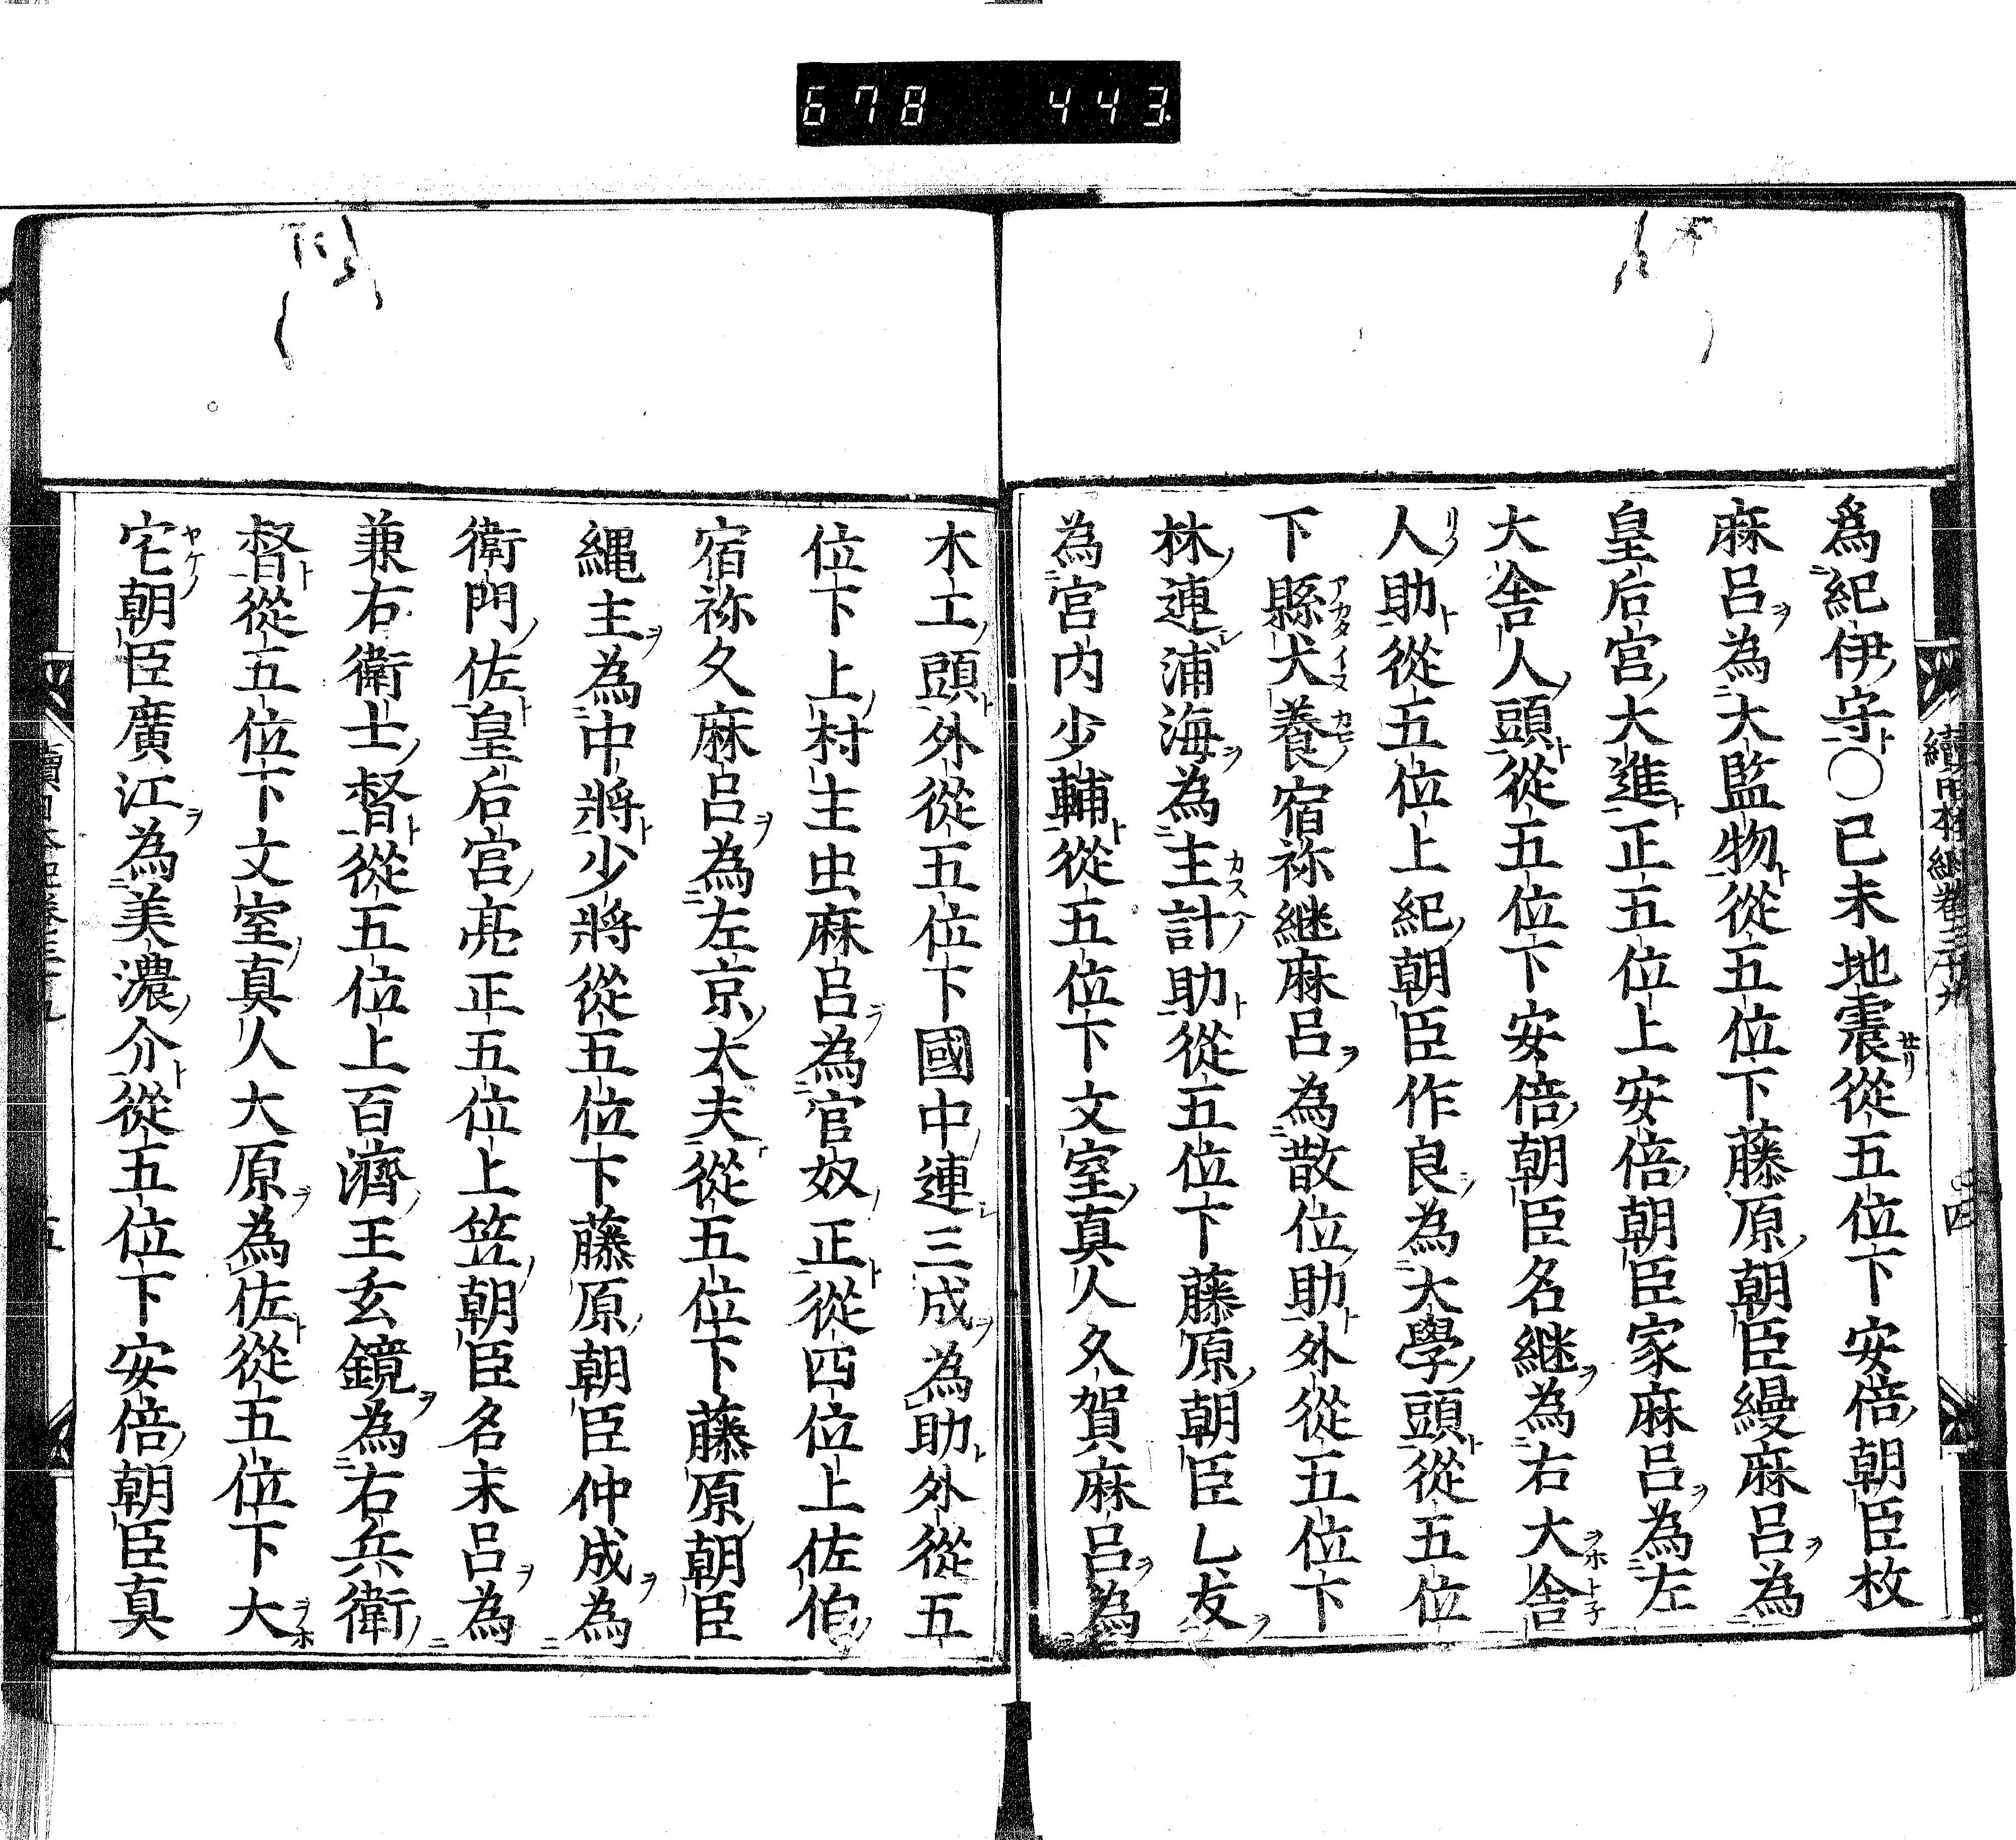 678 443
續日本紀卷三十九
四
爲紀伊守〇己未地震從五位下安倍朝臣枚
麻呂為大監物從五位下藤原朝臣縵麻呂為
皇后宮大進正五位上安倍朝臣家麻呂為左
大舍人頭從五位下安倍朝臣名継為右大舍
人助從五位上紀朝臣作良為大學頭從五位
下縣犬養宿祢継麻呂為散位助外從五位下
林連浦海為主計助從五位下藤原朝臣乙友
為宮内少輔從五位下文室真人久賀麻呂為
木工頭外從五位下國中連三成為助外從五
位下上村主虫麻呂為官奴正從四位上佐伯
宿祢久麻呂為左京大夫從五位下藤原朝臣
縄主為中將少將從五位下藤原朝臣仲成為
衛門佐皇后宮亮正五位上笠朝臣名末呂為
兼右衛士督從五位上百濟王玄鏡為右兵衛
督從五位下文室真人大原為佐從五位下大
宅朝臣廣江為美濃介從五位下安倍朝臣真